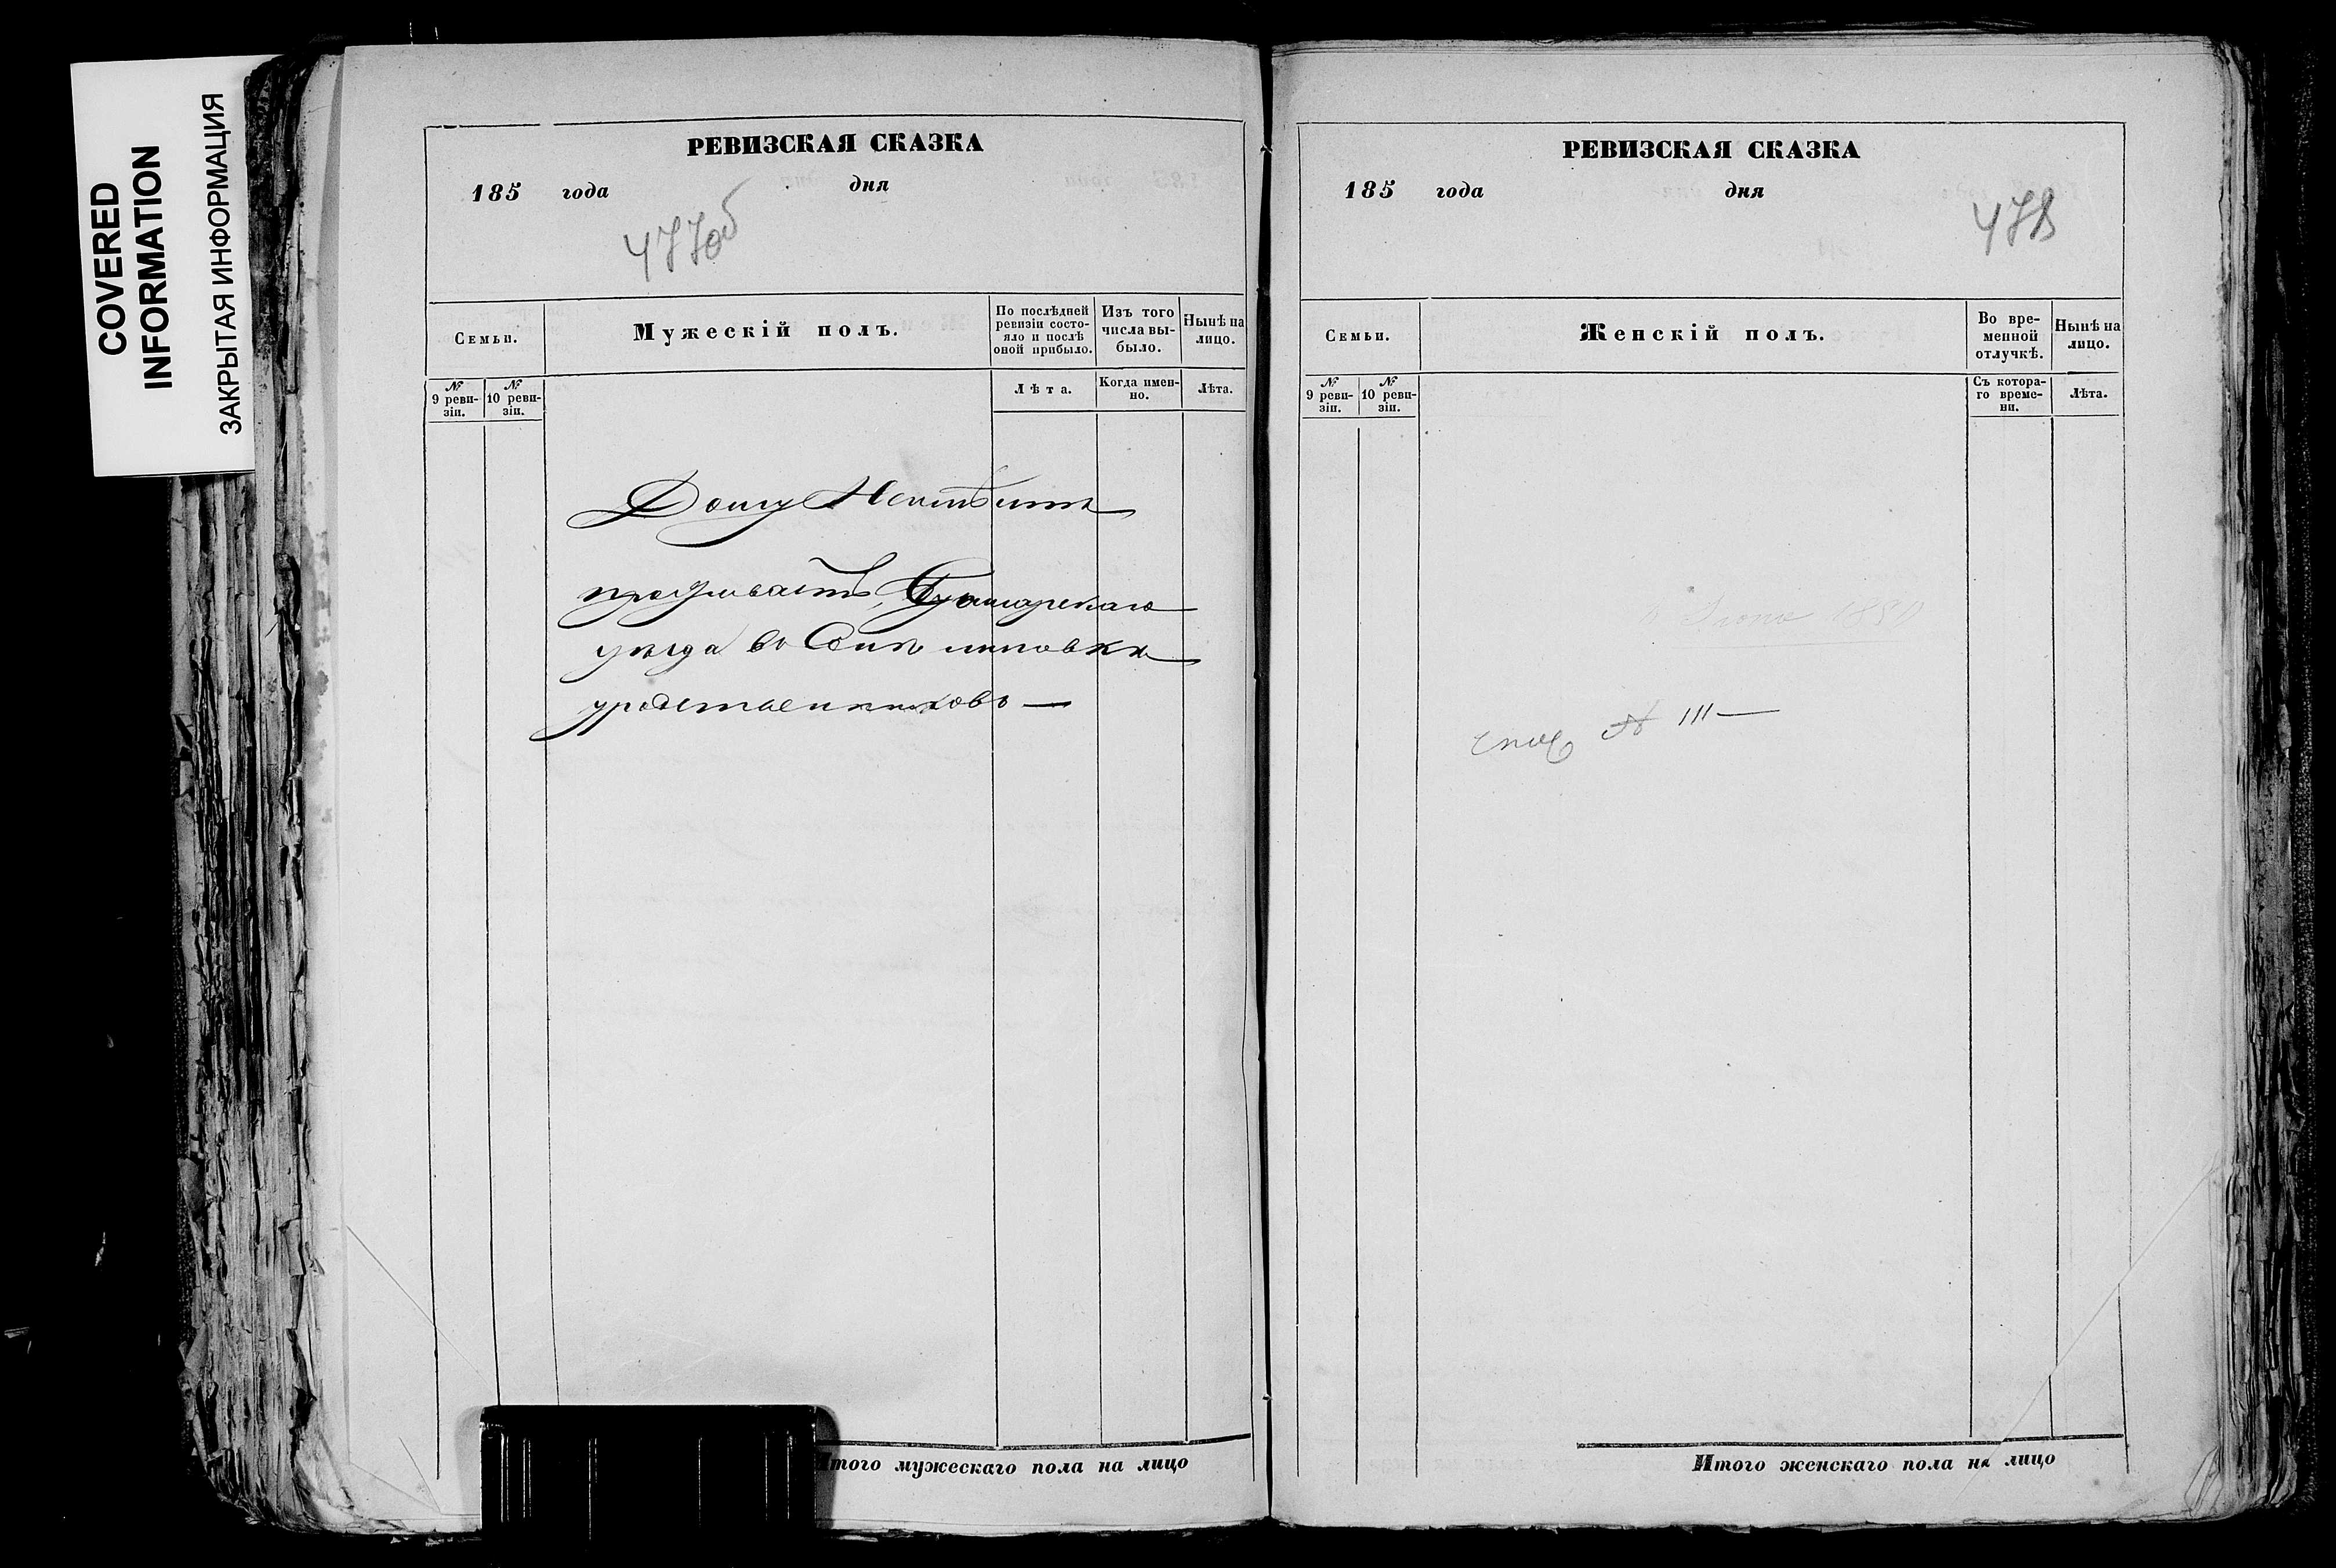 COVERED
INFORMATION
ЗАКРЫТАЯ ИНФОРМАЦИЯ
РЕВИЗСКАЯ СКАЗКА
185 года дня
477об
Семьи.
Мужескій полъ.
По послѣдней
ревизіи состо-
яло и послѣ
оной прибыло.
Изъ того
числа вы-
было.
Нынѣ на
лицо.
№
9 реви-
зіи.
№
10 реви-
зіи.
Лѣта.
Когда имен-
но.
Лѣта.
Дому Неимѣитъ
проживаетъ
уезда въ Селѣ
уродственниковъ —
Итого мужескаго пола на лицо
РЕВИЗСКАЯ СКАЗКА
185 года дня
478
Семьи.
Женскій полъ.
Во вре-
менной
отлучкѣ.
Нынѣ на
лицо.
№
9 реви-
зіи.
№
10 реви-
зіи.
Съ котора-
го време-
ни.
Лѣта.
№ 111 —
Итого женскаго пола на лицо